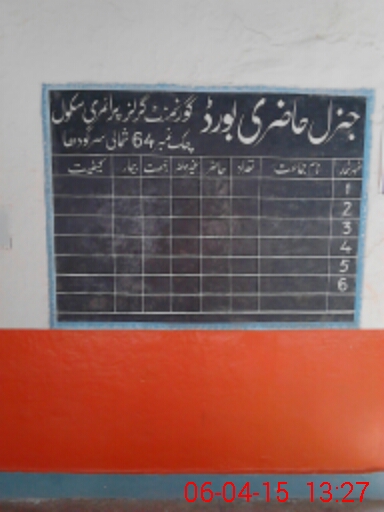 جنرل حاضری بورڈ گورنمنٹ گرلز پرائمری سکول
چک نمبر 64 شمالی سرگودھا
نمبر شمار نام جماعت تعداد حاضر غیر حاضر رخصت بیمار کیفیت
1
2
3
4
5
6
06-04-15 13:27